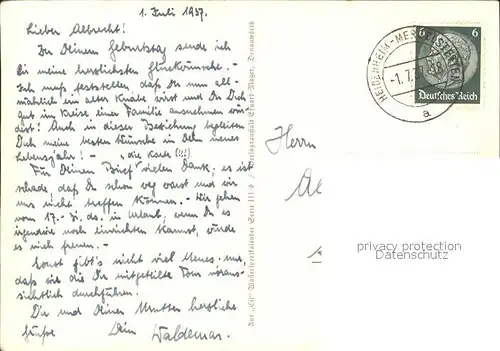 1. Juli 1937.
Lieber Albrecht!
Zu Deinem Geburtstag sende ich
Dir meine herzlichsten Glückwünsche.-
Ich muß feststellen, daß Du nun all-
mählich ein alter Knabe wirst und Dich
gut im Kreise einer Familie ausnehmen wür-
dest! Auch in dieser Beziehung begleiten
Dich meine besten Wünsche in dein neues
Lebensjahr! - "die Karte (!!!)
Für Deinen Brief vielen Dank; es ist
schade, daß Du schon weg warst und wir
uns nicht treffen können. - Wir gehen
vom 17.- ds. in Urlaub, wenn Du es
irgendwie noch einrichten kannst, würde
es mich freuen. -
Sonst gibt's nicht viel Neues - nur,
daß wir die Dir mitgeteilte Tour voraus-
sichtlich durchführen.
Dir und Deiner Mutter herzliche
Grüße Dein Waldemar.
Verlagsanstalt Donauwörth
HEIDENHEIM
-1.7.
a
6 6
Deutsches Reich
Herrn
privacy protection
Datenschutz